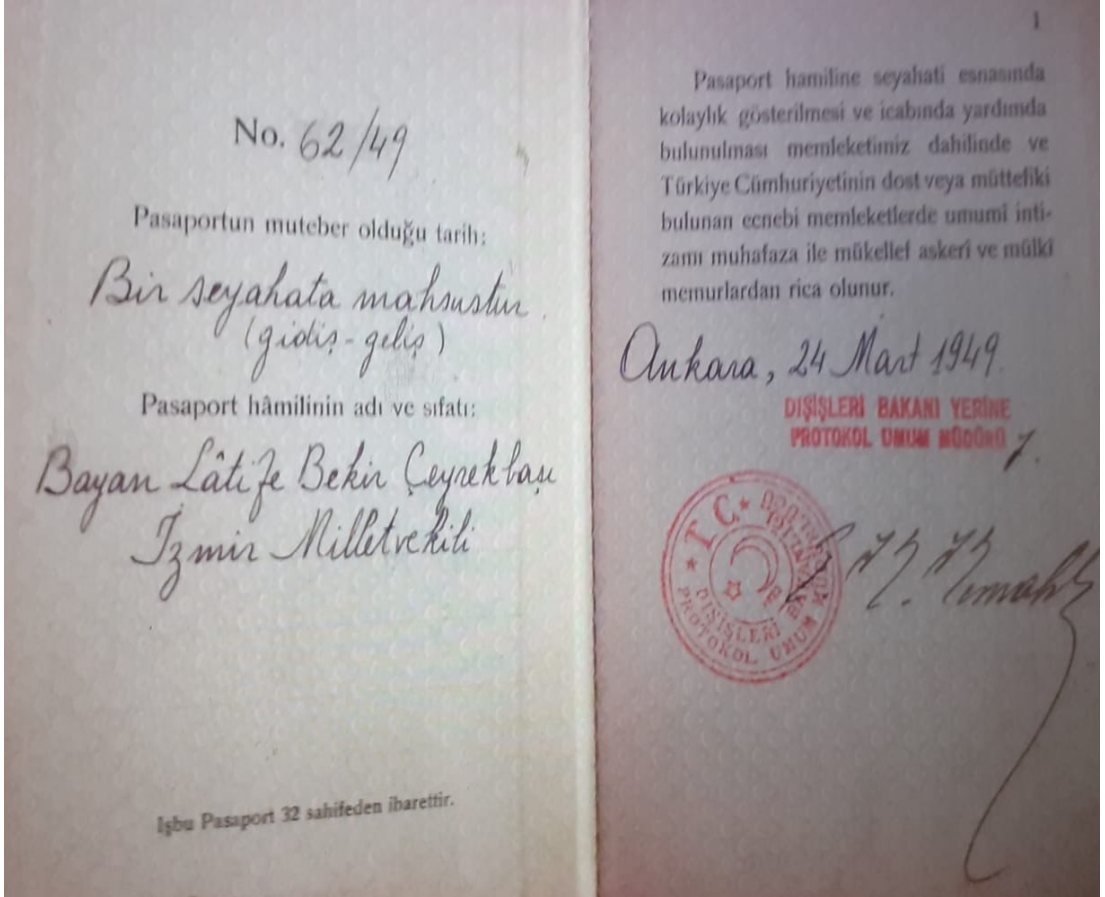 No. 62/49
Pasaportun muteber olduğu tarih:
Bir seyahata mahsustur.
(gidiş-geliş)
Pasaport hâmilinin adı ve sıfatı:
Bayan Lâtife Bekir Çeyrekbaşı
İzmir Milletvekili
Işbu Pasaport 32 sahifeden ibarettir.
1
Pasaport hamiline seyahati esnasında
kolaylık gösterilmesi ve icabında yardımda
bulunulması memleketimiz dahilinde ve
Türkiye Cümhuriyetinin dost veya müttefiki
bulunan ecnebi memleketlerde umumî inti-
zamı muhafaza ile mükellef askerî ve mülkî
memurlardan rica olunur.
Ankara, 24 Mart 1949.
DIŞİŞLERİ BAKANI YERİNE
PROTOKOL UMUM MÜDÜRÜ
T.C.
DIŞİŞLERİ
PROTOKOL UMUM